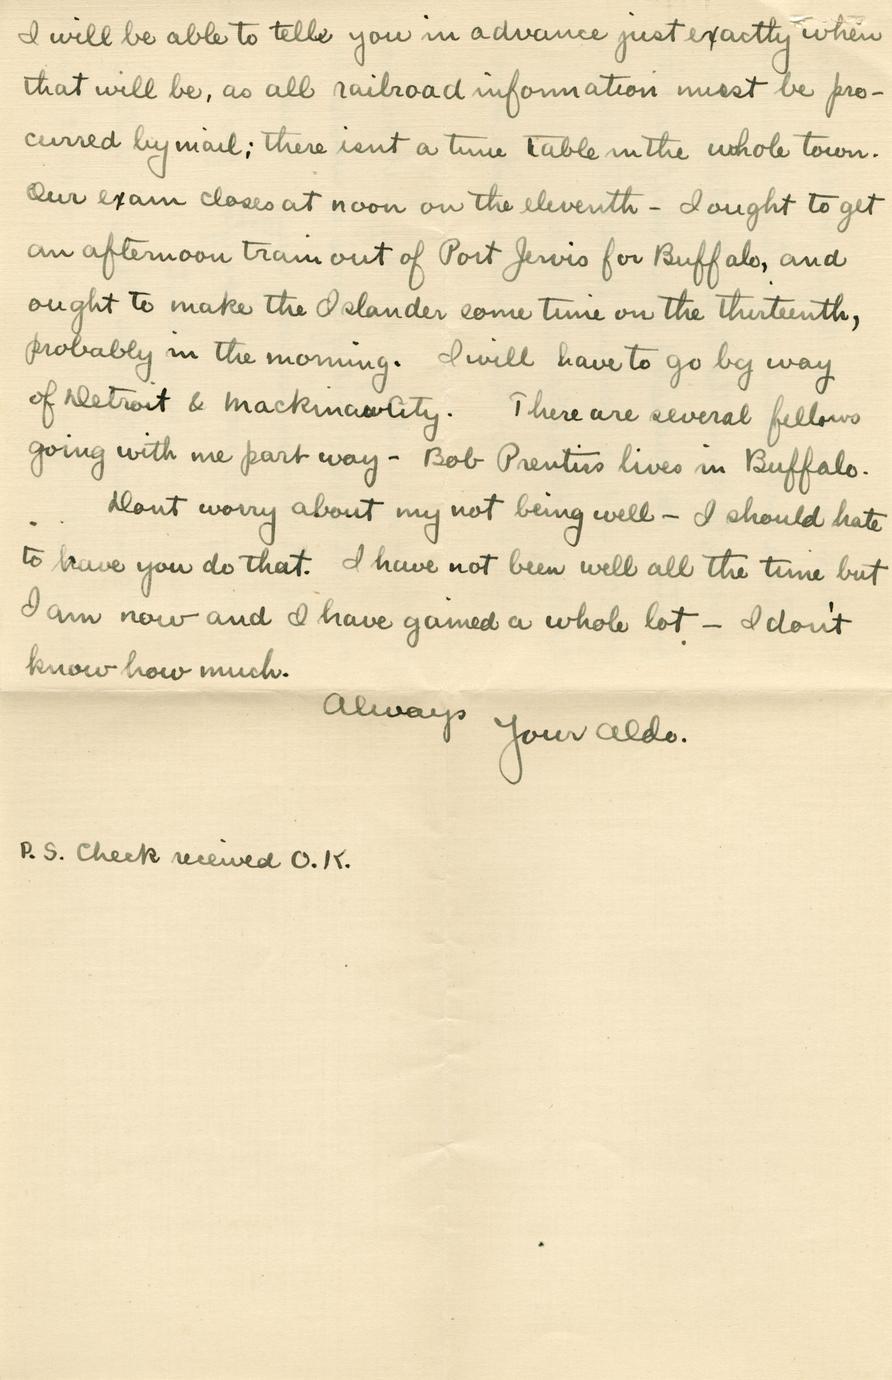 I will be able to tell you in advance just exactly when
that will be, as all railroad information must be pro-
curred by mail; there isnt a time table in the whole town.
Our exam closes at noon on the eleventh – I ought to get
an afternoon train out of Port Jervis for Buffalo, and
ought to make the Islander some time on the thirteenth,
probably in the morning. I will have to go by way
of Detroit & Mackinaw City. There are several fellows
going with me part way – Bob Prentiss lives in Buffalo.
Dont worry about my not being well – I should hate
to have you do that. I have not been well all the time but
I am now and I have gained a whole lot – I don't
know how much.
Always
Your Aldo.
P.S. Check received O.K.